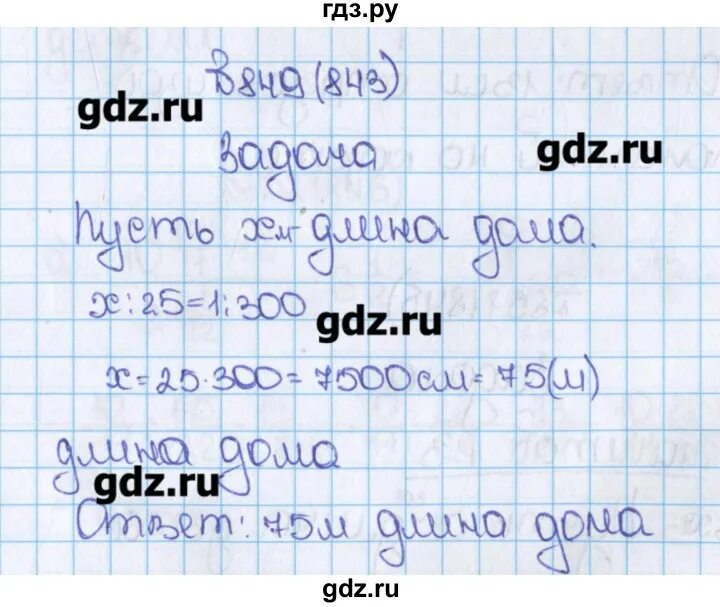 гдз.ру
В849(843)
gdz.ru
задача
gdz.ru
Пусть xм-длина дома.
x:25=1:300
gdz.ru
x=25·300=7500см=75(м)
длина дома
gdz.ru
Ответ: 75м длина дома
gdz.ru